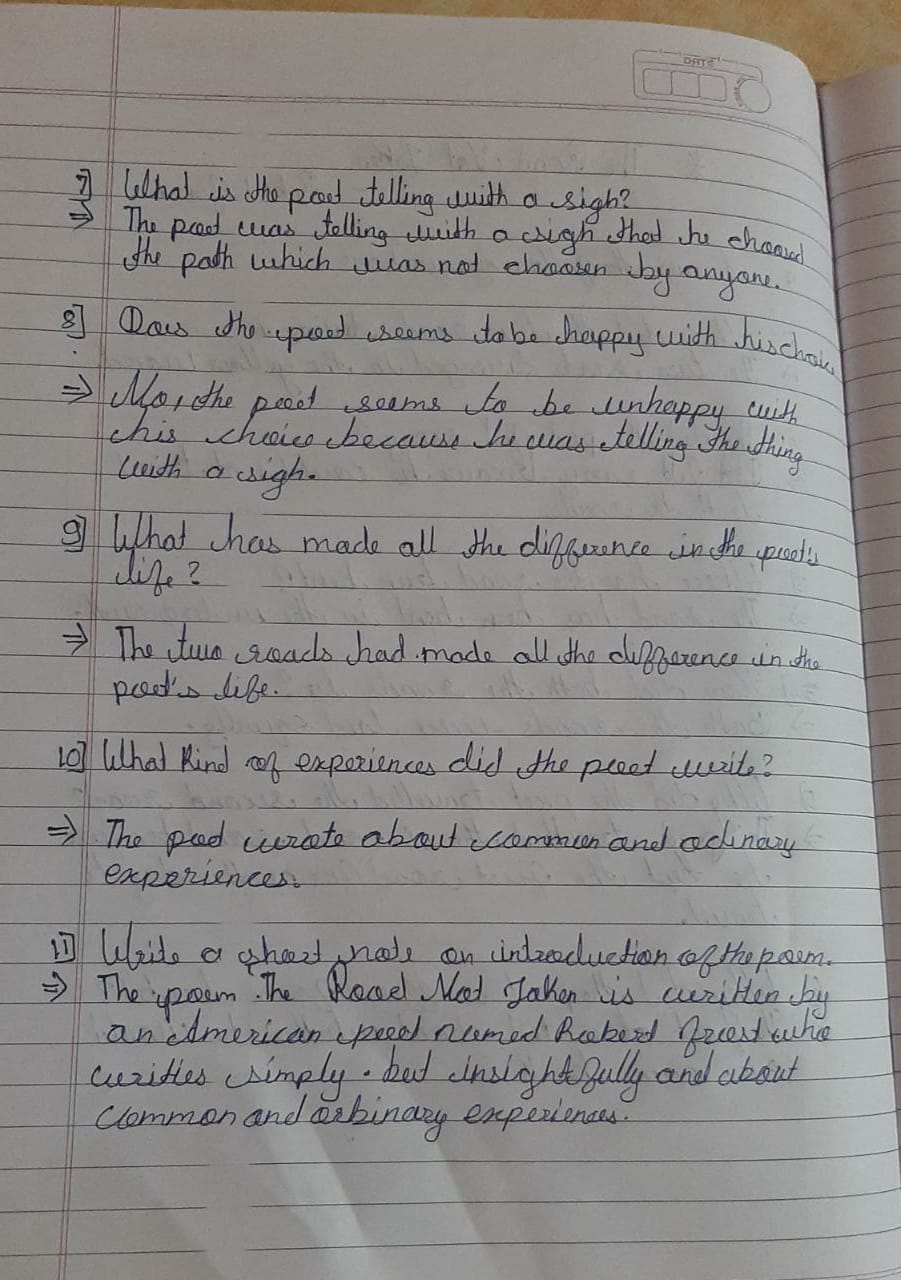 DATE
7] What is the poet telling with a sigh?
⇒ The poet was telling with a sigh that he choosed
the path which was not choosen by anyone.
8] Does the poet seems to be happy with his
⇒ No, the poet seems to be unhappy with
his choice because he was telling the thing
with a sigh.
9] What has made all the difference in the poet's
life?
⇒ The two roads had made all the difference in the
poet's life.
10] What kind of experiences did the poet write?
⇒ The poet wrote about common and odinary
experiences.
11] Write a short note on introduction of the poem.
⇒ The poem The Road Not Taken is written by
an American poet named Robert frost who
writtes simply. but insightfully and about
common and orbinary experiences.